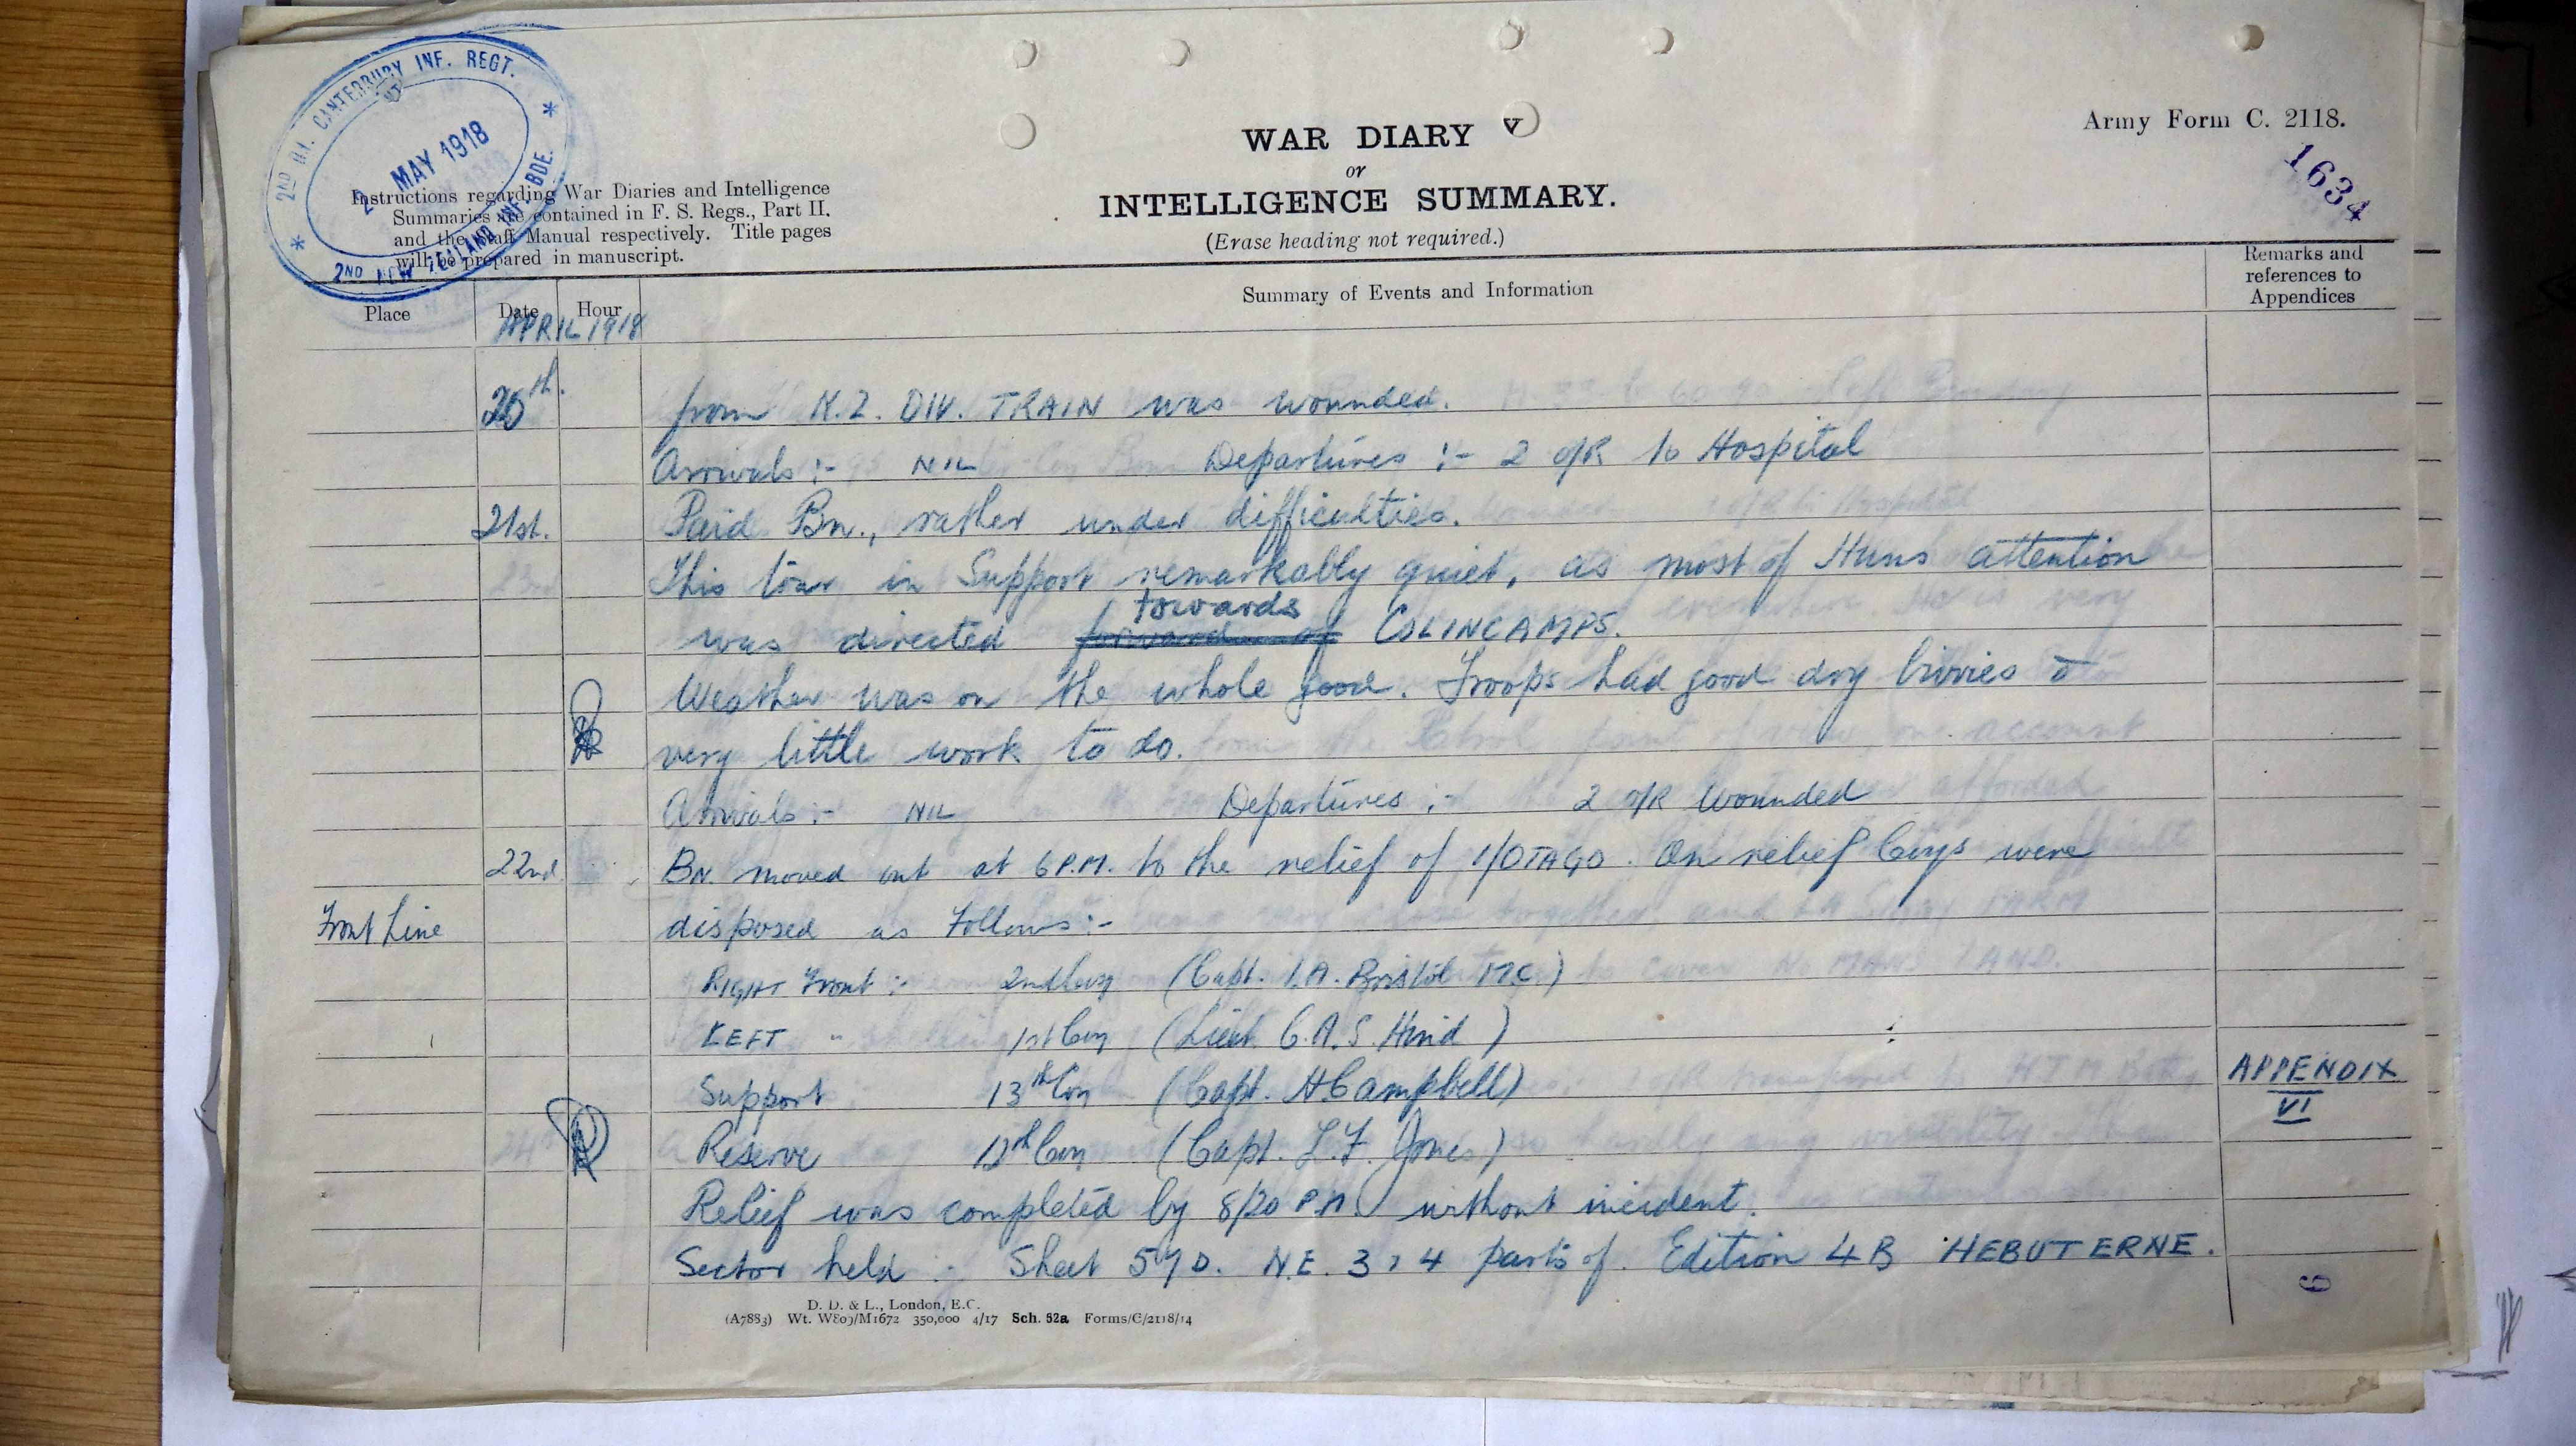 2ND BN. CANTERBURY INF. REGT.
2 MAY 1918
2ND NEW ZEALAND INF. BDE.
Instructions regarding War Diaries and Intelligence
Summaries are contained in F. S. Regs., Part II.
and the Staff Manual respectively. Title pages
will be prepared in manuscript.
WAR DIARY
or
INTELLIGENCE SUMMARY.
(Erase heading not required.)
Army Form C. 2118.
1634
Place Date Hour Summary of Events and Information Remarks and references to Appendices
APRIL 1918
20th. from N.Z. DIV. TRAIN was wounded.
Arrivals :- NIL Departures :- 2 O/R to Hospital
21st. Paid Bn., rather under difficulties.
This tour in Support remarkably quiet, as most of Huns attention
towards
was directed forward of COLINCAMPS.
Weather was on the whole good. Troops had good dry bivvies &
very little work to do.
Arrivals :- NIL Departures :- 2 O/R Wounded
22nd. BN. moved out at 6 P.M. to the relief of 1/OTAGO. On relief Coys were
Front Line disposed as Follows :-
RIGHT Front :- 2nd Coy (Capt. I.A. Bristol M.C.)
LEFT " 1st Coy (Lieut. G.A.S. Hind)
Support 13th Coy (Capt. N Campbell) APPENDIX
VI
Reserve 12th Coy (Capt. L.F. Jones)
Relief was completed by 8/20 P.M. without incident.
Sector held :- Sheet 57D. N.E. 3 & 4 parts of. Edition 4B HEBUTERNE.
6
D. D. & L., London, E.C.
(A7883) Wt. W809/M1672 350,000 4/17 Sch. 52a Forms/C/2118/14